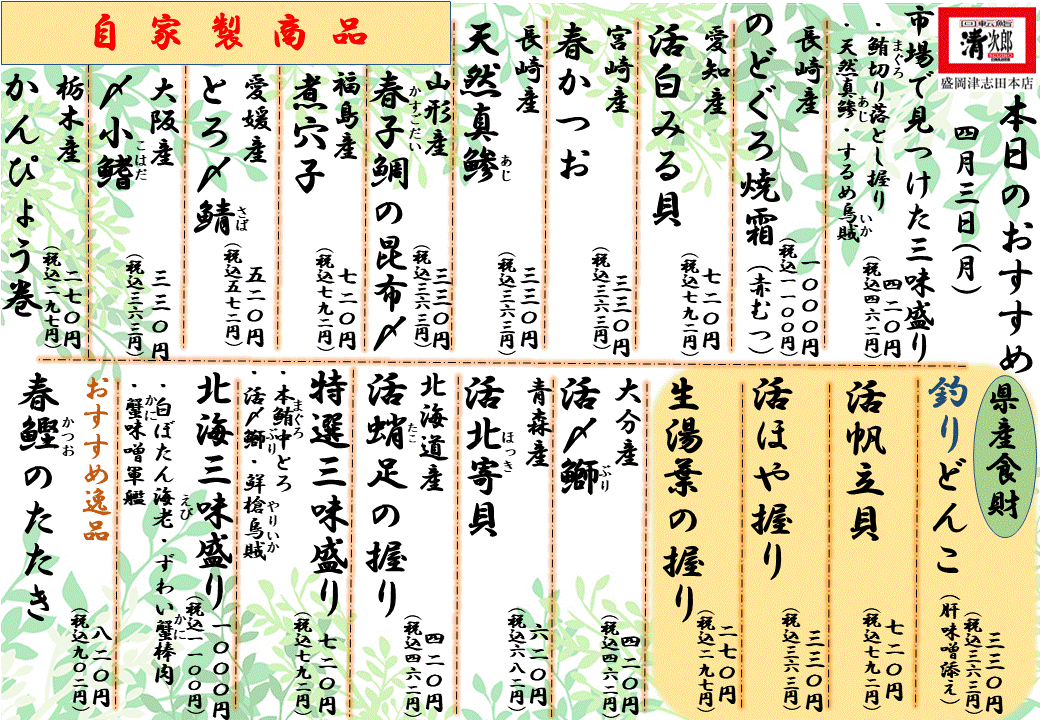 回転鮨
清次郎
SEIJIRO
盛岡津志田本店
本日のおすすめ
四月三日(月)
市場で見つけた三味盛り
・鮪切り落とし握り
まぐろ
・天然真鯵・するめ烏賊
あじ
いか
四二〇円
(税込四六二円)
長崎産
のどぐろ焼霜(赤むつ)
一〇〇〇円
(税込一一〇〇円)
愛知産
活白みる貝
七二〇円
(税込七九二円)
宮崎産
春かつお
三三〇円
(税込三六三円)
長崎産
天然真鯵
あじ
三三〇円
(税込三六三円)
自家製商品
山形産
春子鯛の昆布〆
かすごだい
三三〇円
(税込三六三円)
福島産
煮穴子
七二〇円
(税込七九二円)
愛媛産
とろ〆鯖
さば
五二〇円
(税込五七二円)
大阪産
〆小鰭
こはだ
三三〇円
(税込三六三円)
栃木産
かんぴょう巻
二七〇円
(税込二九七円)
県産食財
釣りどんこ(肝味噌添え)
三三〇円
(税込三六三円)
活帆立貝
七二〇円
(税込七九二円)
活ほや握り
三三〇円
(税込三六三円)
生湯葉の握り
二七〇円
(税込二九七円)
大分産
活〆鰤
ぶり
四二〇円
(税込四六二円)
青森産
活北寄貝
ほっき
六二〇円
(税込六八二円)
北海道産
活蛸足の握り
たこ
四二〇円
(税込四六二円)
特選三味盛り
・本鮪中とろ
まぐろ
・活〆鰤・鮮槍烏賊
ぶり
やりいか
七二〇円
(税込七九二円)
北海三味盛り
・白ぼたん海老・ずわい蟹棒肉
えび
かに
・蟹味噌軍艦
かに
一〇〇〇円
(税込一一〇〇円)
おすすめ逸品
春鰹のたたき
かつお
八二〇円
(税込九〇二円)